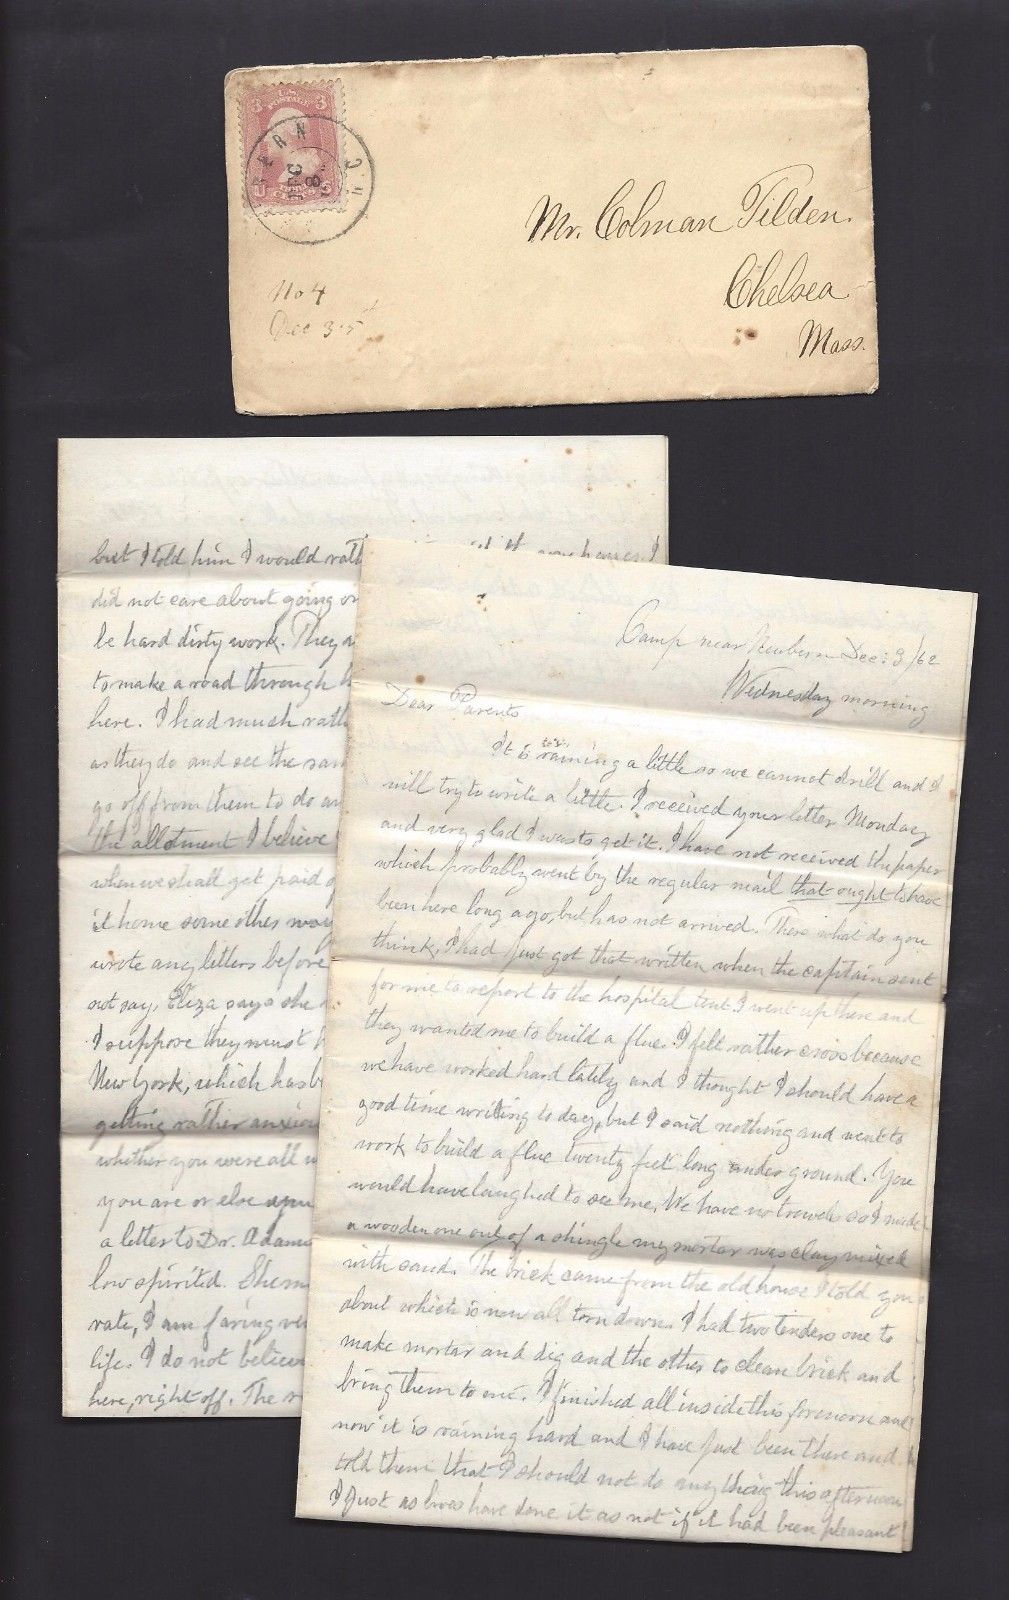 3 U.S. POSTAGE 3
U S
ERN
DEC
8
N.C.
Mr. Colman Tilden.
Chelsea
Mass.
No 4
Dec 3-5
but I told him I would rath
did not care about going or
be hard dirty work. They a
to make a road through
here. I had much rath
as they do and see the sam
go off from them to do an
the allotment I believe
when we shall get paid o
it home some other way
wrote any letters before
not say, Eliza says she
I suppose they must
New York, which has b
getting rather anxiou
whether you were all w
you are or else you
a letter to Dr. Adams
low spirited. She m
rate, I am faring ve
life. I do not believe
here, right off. The r
Camp near Newbern Dec: 3/62
Wednesday morning
Dear Parents
It is raining a little so we cannot drill and I
will try to write a little. I received your letter Monday
and very glad I was to get it. I have not received the paper
which probably went by the regular mail that ought to have
been here long ago, but has not arrived. There what do you
think, I had just got that written when the captain sent
for me to report to the hospital tent. I went up there and
they wanted me to build a flue. I felt rather cross because
we have worked hard lately and I thought I should have a
good time writing to day, but I said nothing and went to
work to build a flue twenty feet long under ground. You
would have laughed to see me. We have no trowels so I made
a wooden one out of a shingle my mortar was clay mixed
with sand. The brick came from the old house I told you
about which is now all torn down. I had two tenders one to
make mortar and dig and the other to clean brick and
bring them to me. I finished all inside this forenoon and
now it is raining hard and I have just been there and
told them that I should not do any thing this afternoon
I just as lives have done it as not if it had been pleasant